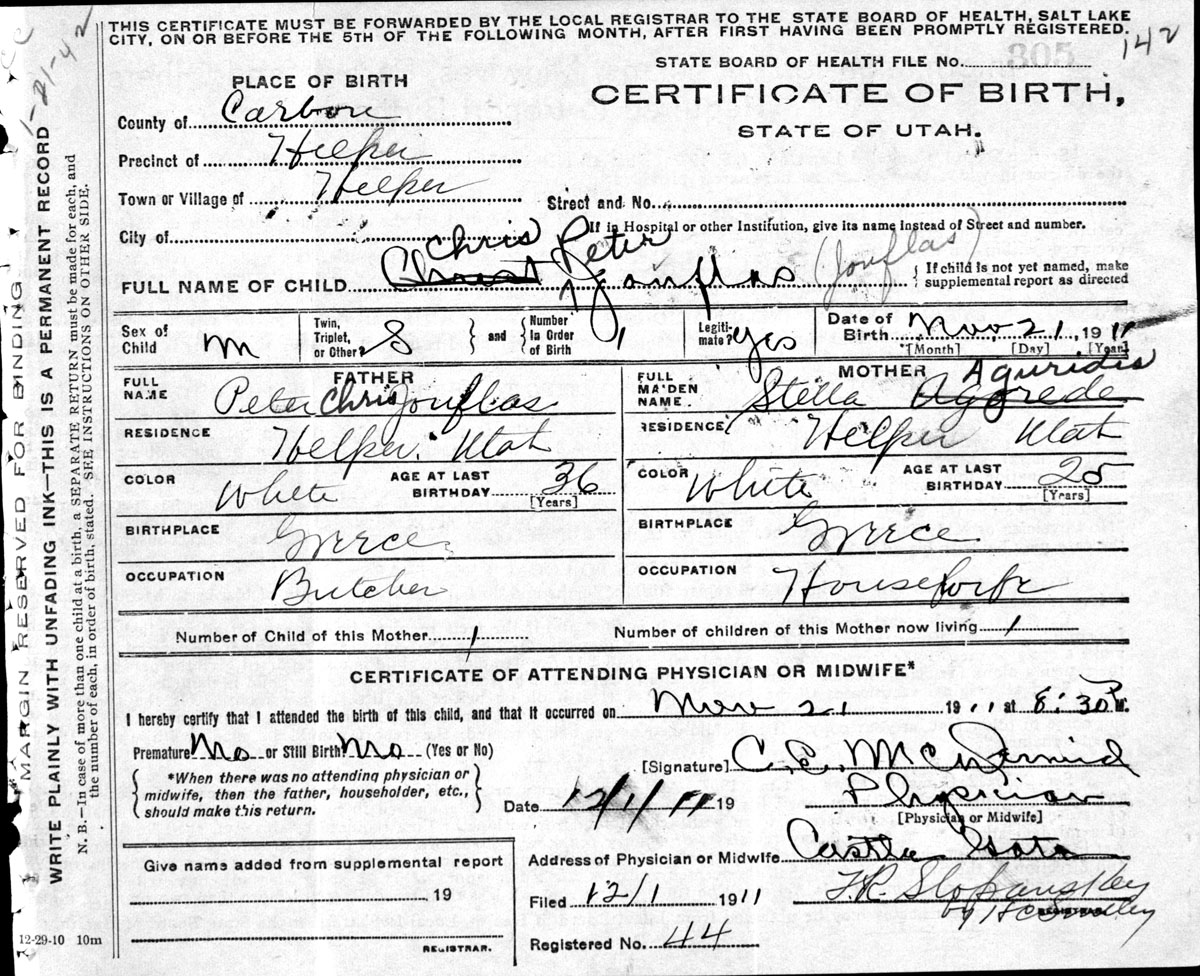 THIS CERTIFICATE MUST BE FORWARDED BY THE LOCAL REGISTRAR TO THE STATE BOARD OF HEALTH, SALT LAKE
CITY, ON OR BEFORE THE 5TH OF THE FOLLOWING MONTH, AFTER FIRST HAVING BEEN PROMPTLY REGISTERED.
142
STATE BOARD OF HEALTH FILE No. 305
PLACE OF BIRTH
CERTIFICATE OF BIRTH,
STATE OF UTAH.
County of Carbon
Precinct of Helper
Town or Village of Helper
Street and No.
City of
If in Hospital or other Institution, give its name instead of Street and number.
Chris Peter
FULL NAME OF CHILD Christ Jouflas (Jouflas)
If child is not yet named, make
supplemental report as directed
Sex of Child M
Twin, Triplet, or Other? S
and Number in Order of Birth 1
Legitimate? Yes
Date of Birth Nov 21, 1911
[Month] [Day] [Year]
FATHER
FULL NAME Peter Chris Jouflas
RESIDENCE Helper, Utah
COLOR White
AGE AT LAST BIRTHDAY 36
[Years]
BIRTHPLACE Greece
OCCUPATION Butcher
MOTHER
FULL MAIDEN NAME. Stella Aguridis
RESIDENCE Helper Utah
COLOR White
AGE AT LAST BIRTHDAY 25
[Years]
BIRTHPLACE Greece
OCCUPATION Housewife
Number of Child of this Mother 1
Number of children of this Mother now living 1
CERTIFICATE OF ATTENDING PHYSICIAN OR MIDWIFE*
I hereby certify that I attended the birth of this child, and that it occurred on Nov 21 1911 at 8:30 P.M.
Premature No or Still Birth No (Yes or No)
*When there was no attending physician or
midwife, then the father, householder, etc.,
should make this return.
[Signature] C. E. McDermid
Date 12/1/11 19
Physician
[Physician or Midwife]
Give name added from supplemental report
, 19
REGISTRAR.
Address of Physician or Midwife Castle Gate
Filed 12/1 1911
F.R. Slopanskey
by H C Smedley
Registered No. 44
12-29-10 10m
MARGIN RESERVED FOR BINDING
WRITE PLAINLY WITH UNFADING INK—THIS IS A PERMANENT RECORD
N. B.—In case of more than one child at a birth, a SEPARATE RETURN must be made for each, and
the number of each, in order of birth, stated. SEE INSTRUCTIONS ON OTHER SIDE.